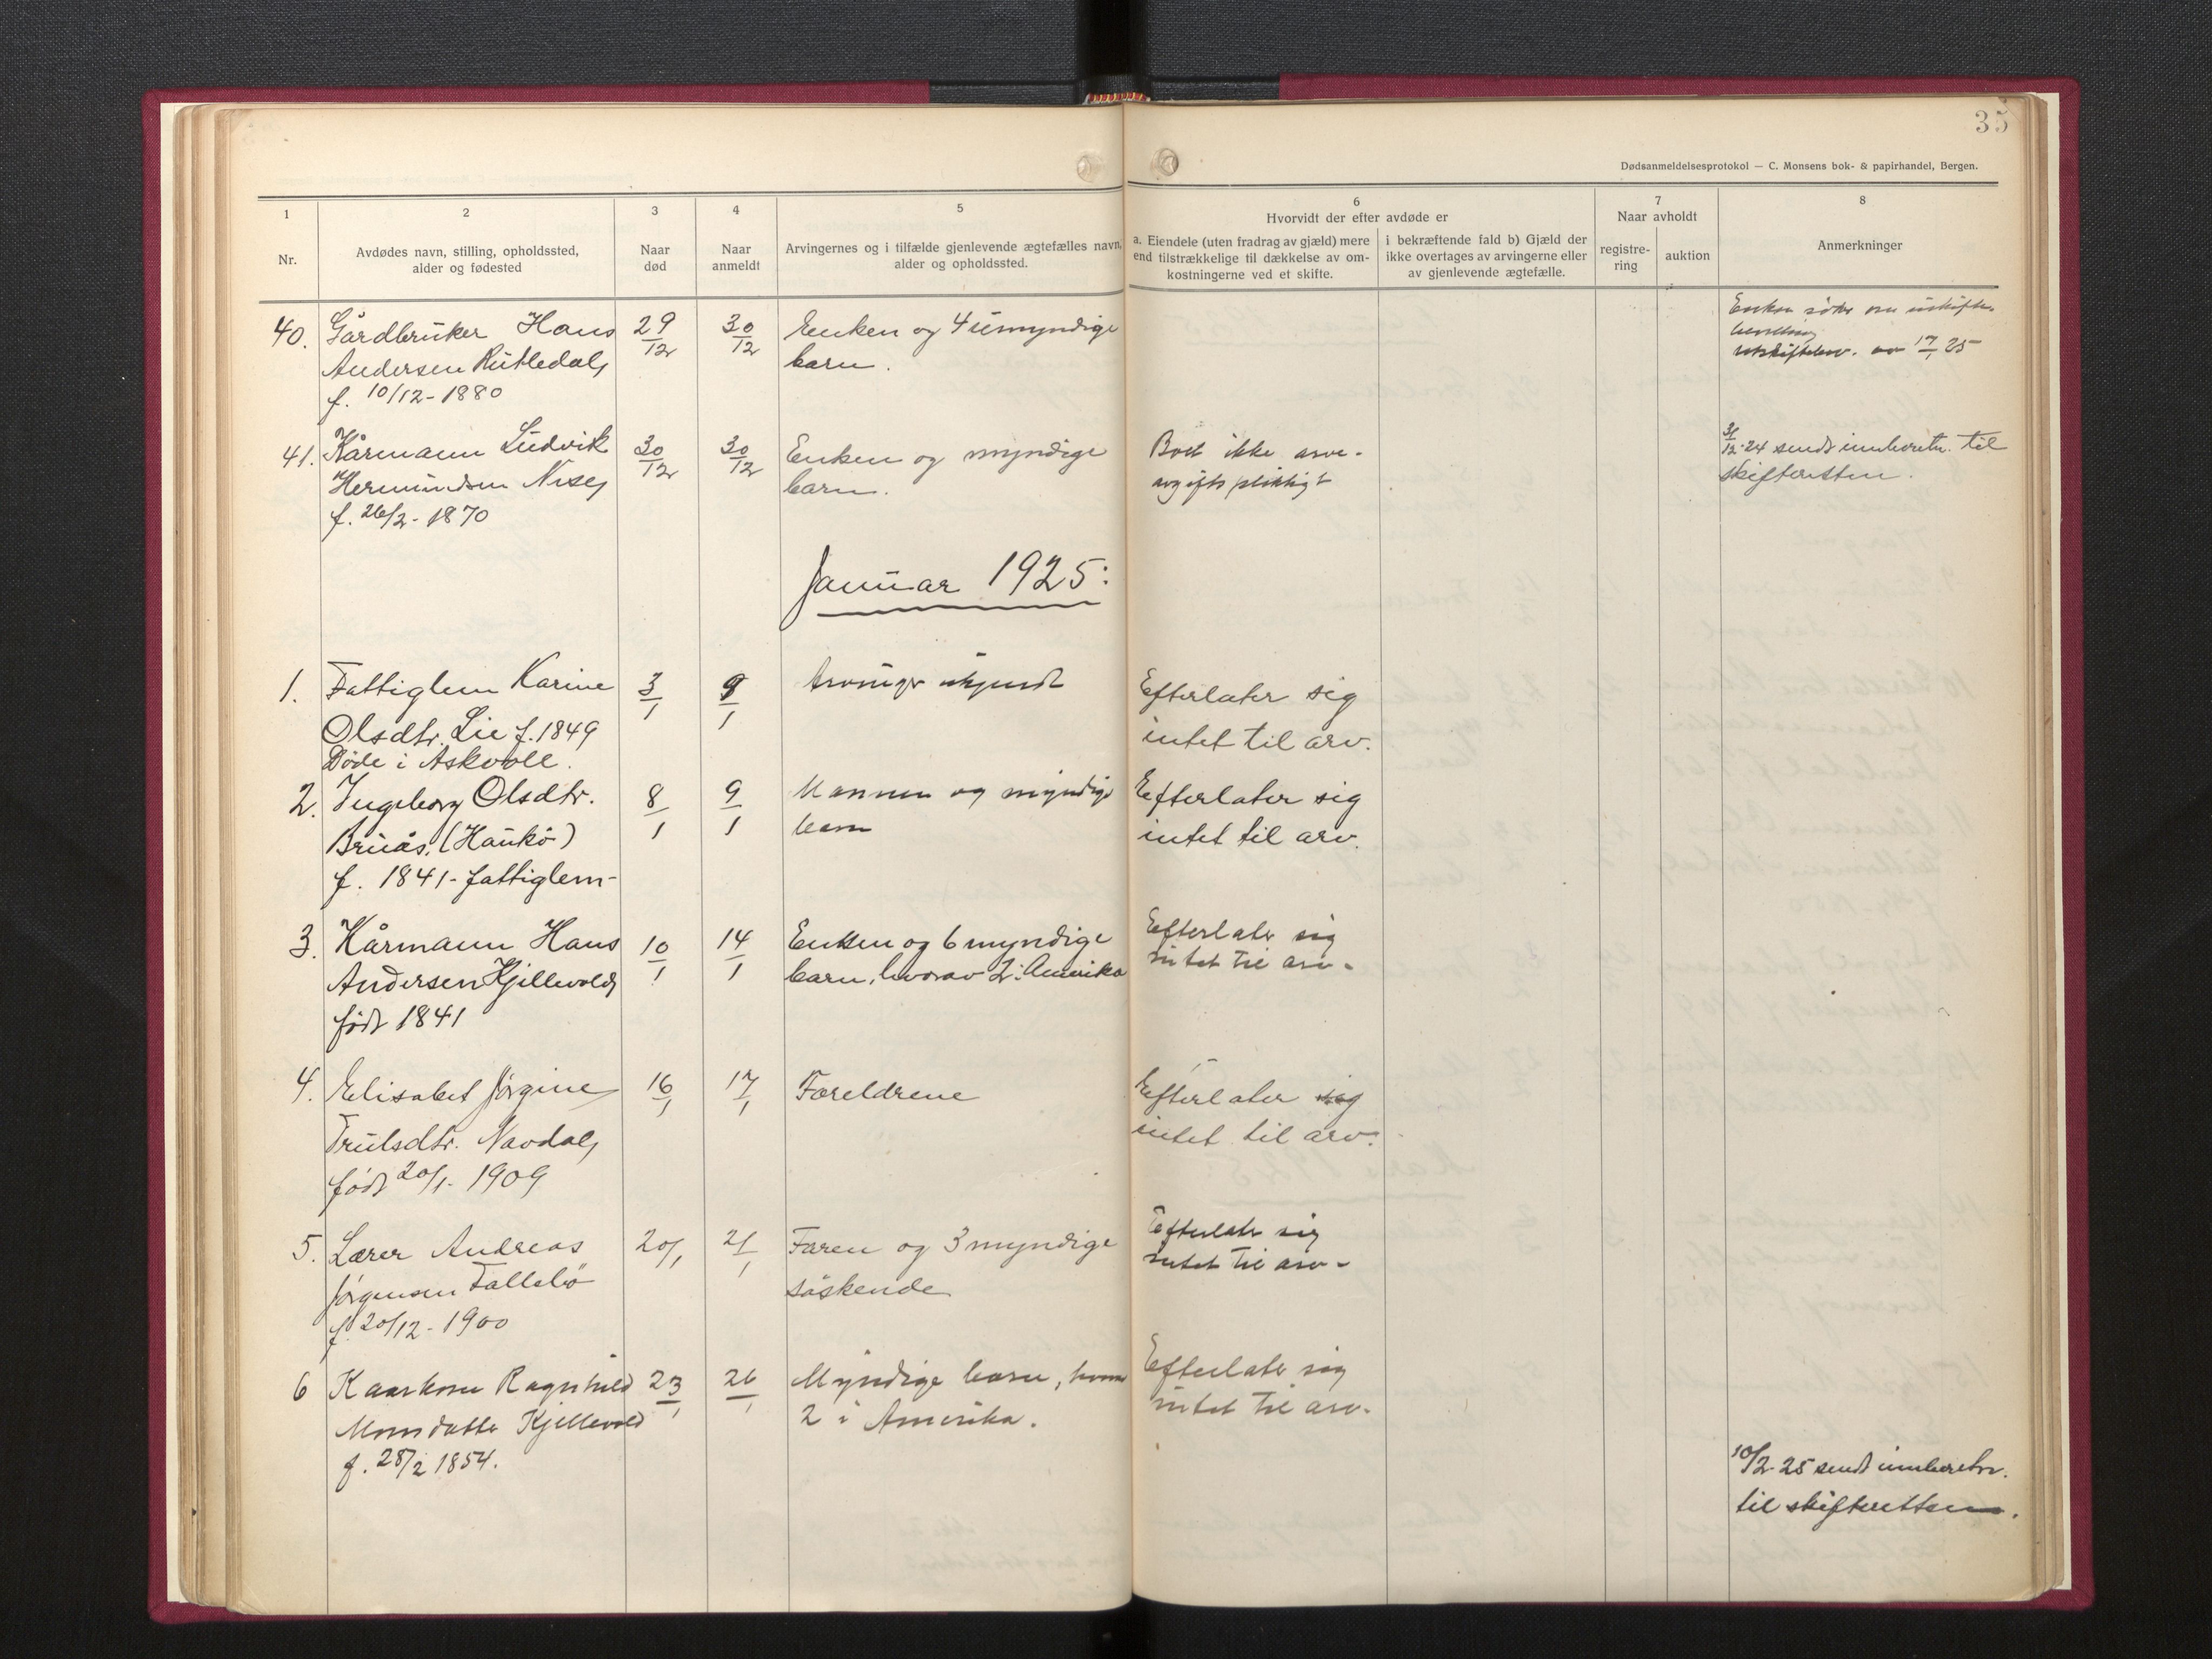 35
Dødsanmeldelsesprotokol — C. Monsens bok- & papirhandel, Bergen.
1
Nr.
2
Avdødes navn, stilling, opholdssted,
alder og fødested
3
Naar
død
4
Naar
anmeldt
5
Arvingernes og i tilfælde gjenlevende ægtefælles navn,
alder og opholdssted.
6
Hvorvidt der efter avdøde er
a. Eiendele (uten fradrag av gjæld) mere
end tilstrækkelige til dækkelse av om-
kostningerne ved et skifte.
i bekræftende fald b) Gjæld der
ikke overtages av arvingerne eller
av gjenlevende ægtefælle.
7
Naar avholdt
registre-
ring
auktion
8
Anmerkninger
40. Gårdbruker Hans 29/12 30/12 Enken og 4 umyndige
Andersen Rutledal, barn.
f. 10/12-1880
Enken
17/1 25
41. Kårmann Ludvik 30/12 30/12 Enken og myndige Boet ikke arve- 31/12-24 sendt innberetn. til
Hermundsen Nise, barn. avgiftspliktigt skifteretten.
f. 26/2-1870
Januar 1925:
1. Fattiglem Karine 3/1 9/1 Arvinger ukjendt Efterlater sig
Olsdtr. Lie f. 1849 intet til arv.
Døde i Askvoll.
2. Ingeborg Olsdtr. 8/1 9/1 Mannen og myndige Efterlater sig
Bruås, (Haukö) barn intet til arv.
f. 1841- fattiglem-
3. Kårmann Hans 10/1 14/1 Enken og 6 myndige Efterlater sig
Andersen Kjellevold, barn, hvorav 2 i Amerika intet til arv-
født 1841
4. Elisabet Jørgine 16/1 17/1 Foreldrene Efterlater sig
Trulsdtr. Navdal, intet til arv.
født 20/1- 1909
5. Lærer Andreas 20/1 21/1 Faren og 3 myndige Efterlater sig
Jørgensen Tallebö söskende intet til arv-
f. 20/12- 1900
6 Kaarkone Ragnhild 23/1 26/1 Myndige barn, hvorav Efterlater sig
Monsdatter Kjellevold 2 i Amerika. intet til arv-
f. 28/2 1854.
10/2-25 sendt innberetn.
til skifteretten.